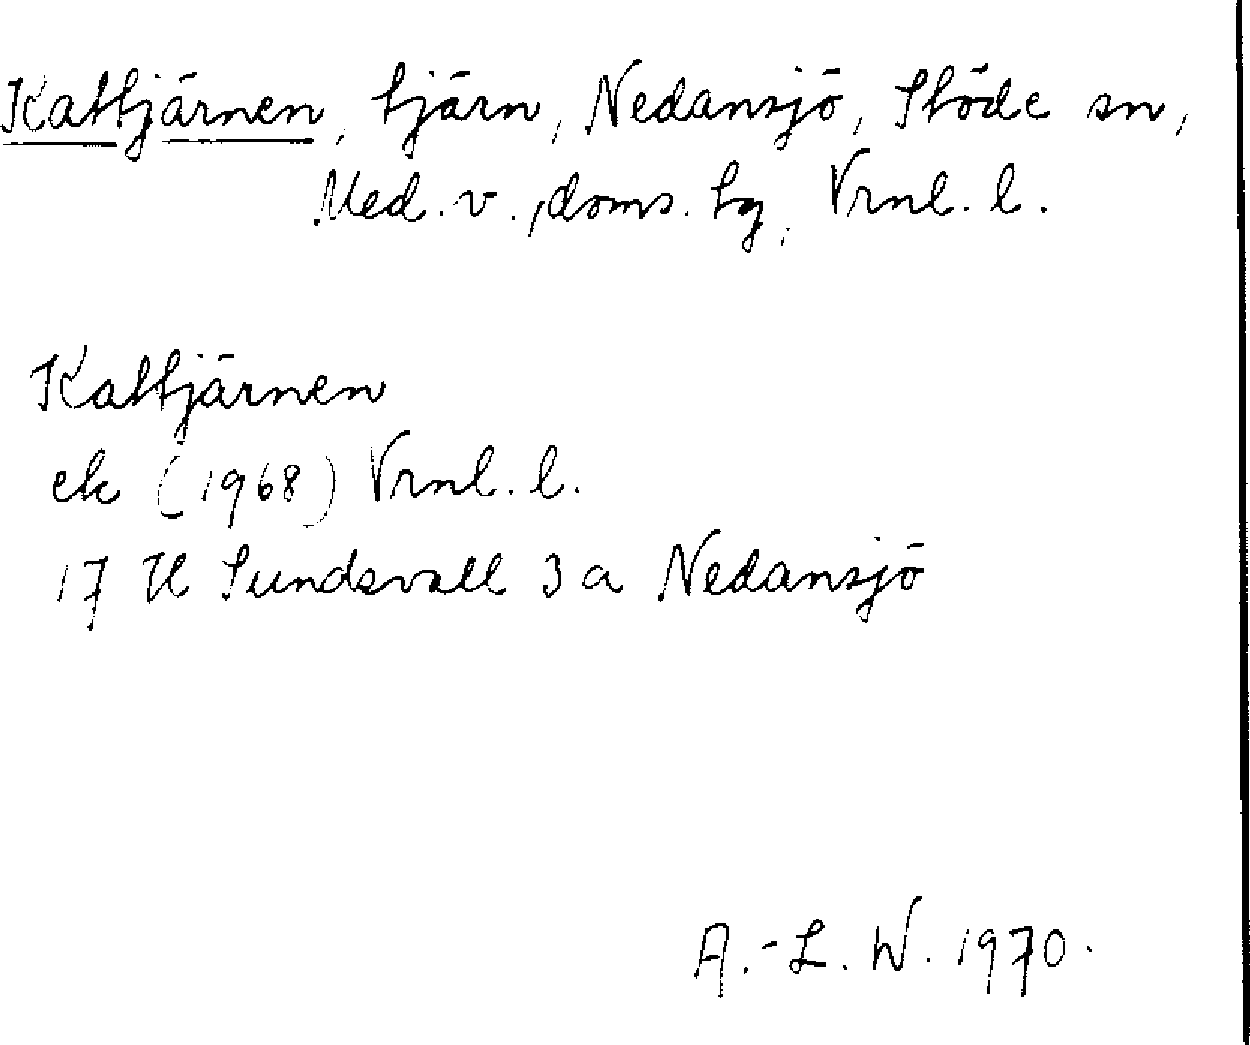 Kattjärnen, tjärn, Nedansjö, Stöde sn,
Med. v., doms. tg, Vrnl. l.
Kattjärnen
ek (1968) Vrnl. l.
17 H Sundsvall 3 a Nedansjö
A.-L. W. 1970.